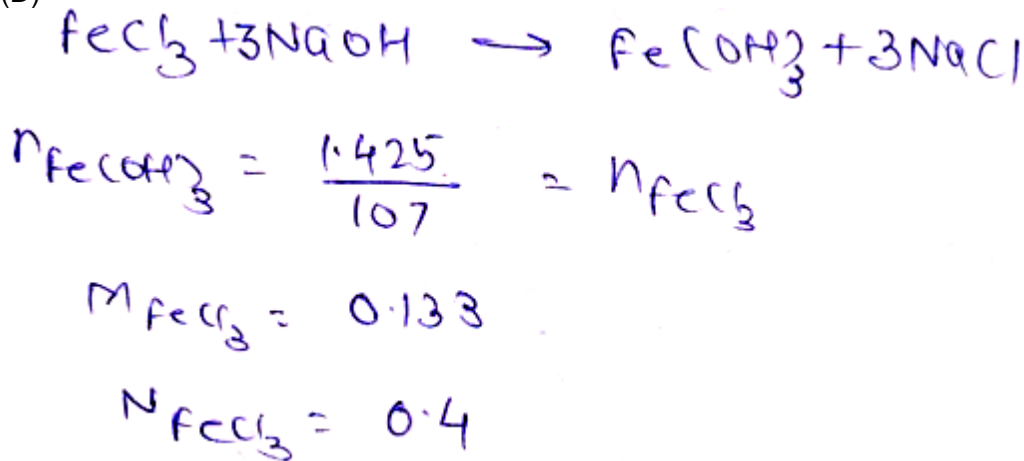 (D)
FeCl3 + 3NaOH → Fe(OH)3 + 3NaCl
nFe(OH)3 = 1.425/107 = nFeCl3
MFeCl3 = 0.133
NFeCl3 = 0.4